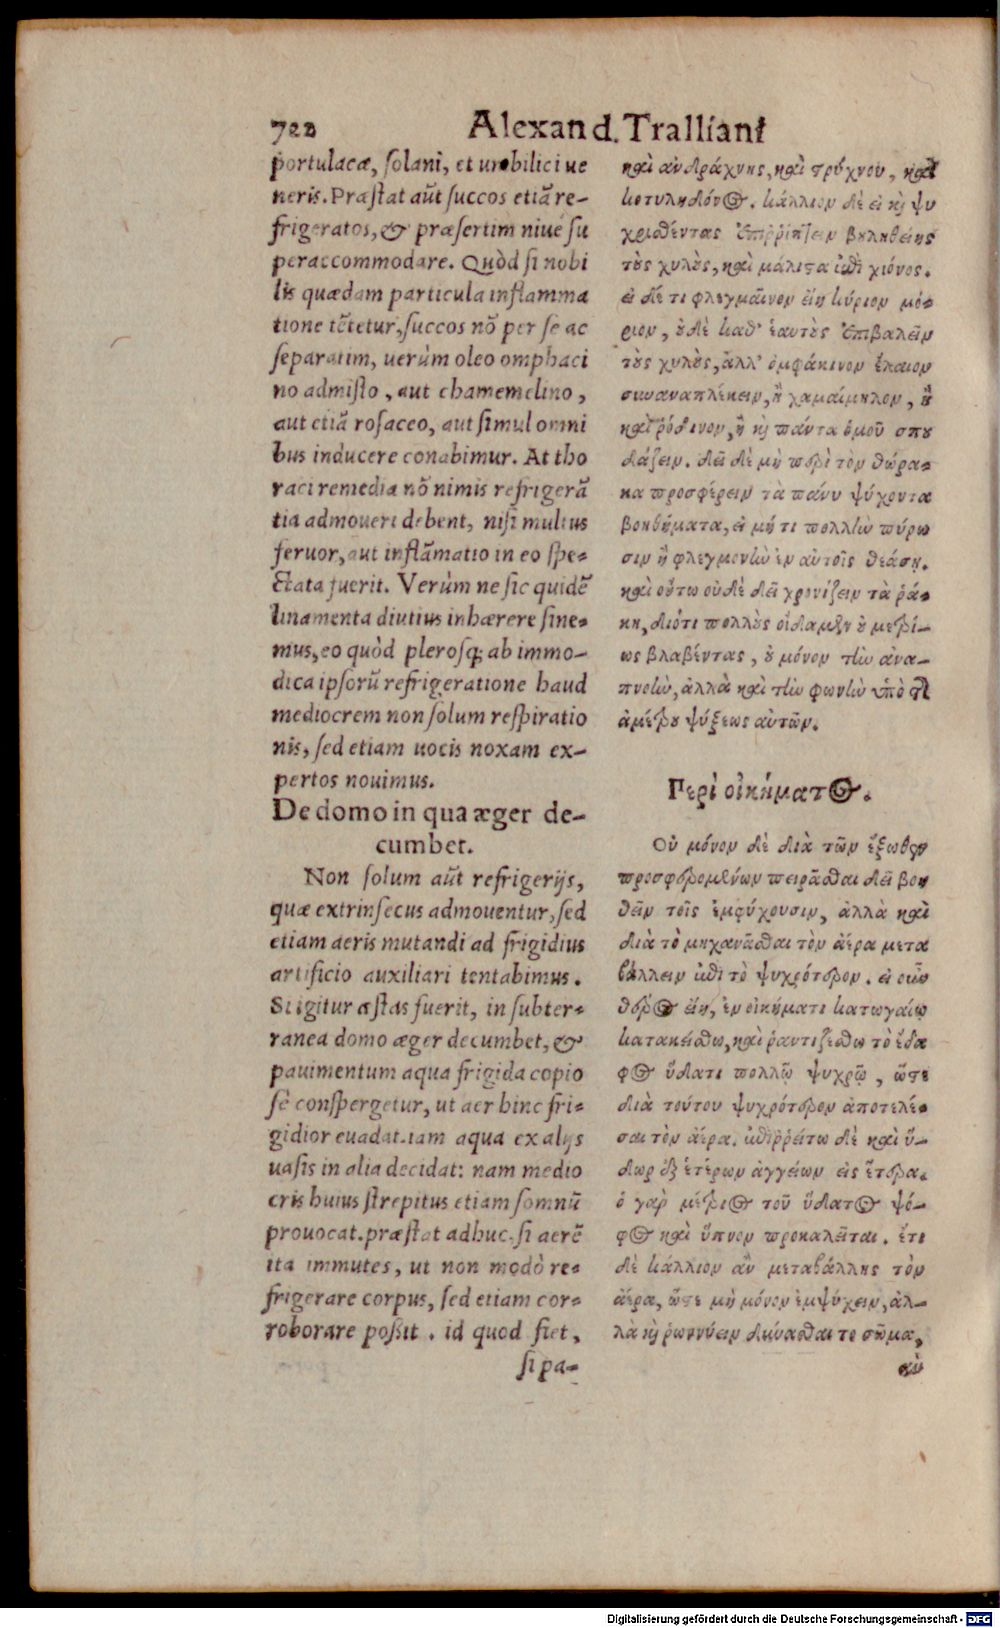 722 Alexand. Tralliani
portulacæ, ſolani, et umbilici ue
neris. Præſtat aũt ſuccos etiã re-
frigeratos, & præſertim niue ſu
peraccommodare. Quòd ſi nobi
lis quædam particula inflamma
tione tẽtetur, ſuccos nõ per ſe ac
ſeparatim, uerùm oleo omphaci
no admiſto, aut chamemelino,
aut etiã roſaceo, aut ſimul omni
bus inducere conabimur. At tho
raci remedia nõ nimis refrigerã
tia admoueri debent, niſi multus
feruor, aut inflãmatio in eo ſpe-
ctata fuerit. Verùm ne ſic quidẽ
linamenta diutius inhærere ſine-
mus, eo quòd pleroſq; ab immo-
dica ipſorũ refrigeratione haud
mediocrem non ſolum reſpiratio
nis, ſed etiam uocis noxam ex-
pertos nouimus.
De domo in qua æger de-
cumbet.
Non ſolum aũt refrigerijs,
quæ extrinſecus admouentur, ſed
etiam aeris mutandi ad frigidius
artificio auxiliari tentabimus.
Si igitur æſtas fuerit, in ſubter-
ranea domo æger decumbet, &
pauimentum aqua frigida copio
ſè conſpergetur, ut aer hinc fri-
gidior euadat. iam aqua ex alijs
uaſis in alia decidat: nam medio
cris huius ſtrepitus etiam ſomnũ
prouocat. præſtat adhuc, ſi aerẽ
ita immutes, ut non modò re-
frigerare corpus, ſed etiam cor-
roborare poßit. id quod fiet,
ſi pa-
καὶ ἀνδράχνης, καὶ τρύχνου, καὶ
κοτυληδόνος. κάλλιον δὲ εἰ καὶ ψυ
χρισθέντας ἐπιρρίπτειν βουληθείης
τοὺς χυλοὺς, καὶ μάλιστα ἐπὶ χιόνος.
εἰ δέ τι φλεγμαῖνον εἴη κύριον μό-
ριον, οὐδὲ καθ' ἑαυτοὺς ἐπιβαλεῖν
τοὺς χυλοὺς, ἀλλ' ὀμφάκινον ἔλαιον
συναναπλέκειν, ἢ χαμαίμηλον, ἢ
καὶ ῥόδινον, ἢ καὶ πάντα ὁμοῦ σπου
δάζειν. δεῖ δὲ μὴ περὶ τὸν θώρα-
κα προσφέρειν τὰ πάνυ ψύχοντα
βοηθήματα, εἰ μή τι πολλὴν πύρω
σιν ἢ φλεγμονὴν ἐν αὐτοῖς θεάσῃ.
καὶ οὕτω οὐδὲ δεῖ χρονίζειν τὰ ῥά-
κη, διότι πολλοὺς οἴδαμεν οὐ μετρί-
ως βλαβέντας, οὐ μόνον τὴν ἀνα-
πνοὴν, ἀλλὰ καὶ τὴν φωνὴν ὑπὸ τῆς
ἀμέτρου ψύξεως αὐτῶν.
Περὶ οἰκήματος.
Οὐ μόνον δὲ διὰ τῶν ἔξωθεν
προσφερομένων πειρᾶσθαι δεῖ βοη
θεῖν τοῖς ἐμψύχουσιν, ἀλλὰ καὶ
διὰ τὸ μηχανᾶσθαι τὸν ἀέρα μετα
βάλλειν ἐπὶ τὸ ψυχρότερον. εἰ οὖν
θέρος εἴη, ἐν οἰκήματι κατωγαίῳ
κατακείσθω, καὶ ῥαντιζέσθω τὸ ἔδα
φος ὕδατι πολλῷ ψυχρῷ, ὥστε
διὰ τούτου ψυχρότερον ἀποτελέ-
σαι τὸν ἀέρα. ἐπιρρείτω δὲ καὶ ὕ-
δωρ ἐξ ἑτέρων ἀγγείων εἰς ἕτερα.
ὁ γὰρ μέτριος τοῦ ὕδατος ψό-
φος καὶ ὕπνον προκαλεῖται. ἔτι
δὲ κάλλιον ἂν μεταβάλλης τὸν
ἀέρα, ὥστε μὴ μόνον ἐμψύχειν, ἀλ-
λὰ καὶ ῥωννύειν δύνασθαι τὸ σῶμα,
Digitalisierung gefördert durch die Deutsche Forschungsgemeinschaft - DFG